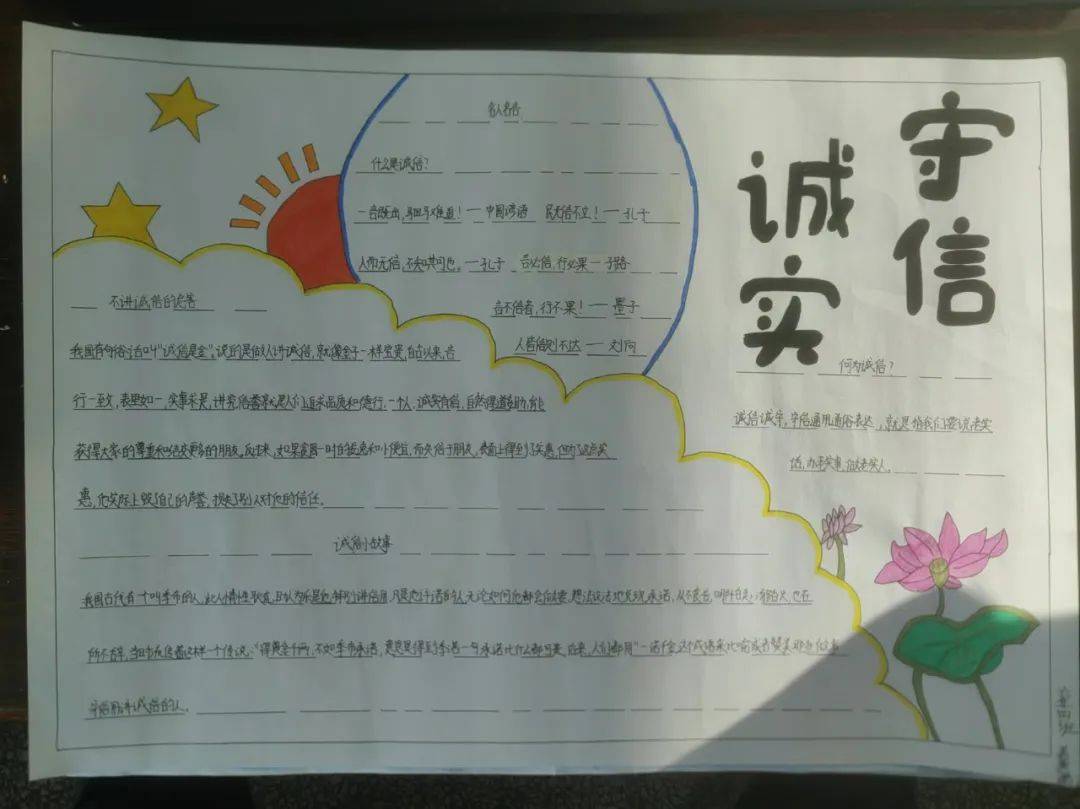 诚实
守信
名人名言
什么是诚信?
一言既出,驷马难追!——中国谚语 民无信不立!——孔子
人而无信,不知其可也。——孔子 言必信,行必果——子路
言不信者,行不果!——墨子
人背信则不达——刘向
不讲诚信的危害
我国有句俗话叫"诚信是金",说的是做人讲诚信,就像金子一样宝贵,自古以来,言
行一致,表里如一,实事求是,讲究信誉就是人们追求品质和德行,一个人,诚实有信,自然得道多助,能
获得大家的尊重和结交更多的朋友。反过来,如果贪图一时的安逸和小便宜,而失信于朋友,表面上得到了实惠,但为了这点实
惠,他实际上毁了自己的声誉,损失了别人对他的信任。
诚信小故事
我国古代有一个叫季布的人,此人情性耿直,且认为乐是他特别讲信用,凡是他许诺的
所不辞,当时流传着这样一个传说:"得黄金千两,不如季布承诺,意思是得到季布一句承诺比什么都可贵,后来,人们都用"一诺千金这个成语来比喻或者赞美那些
守信用讲诚信的人。
何为诚信?
诚信诚字,守信通用通俗表达,就是指我们要说老实
话,办老实事,做老实人。